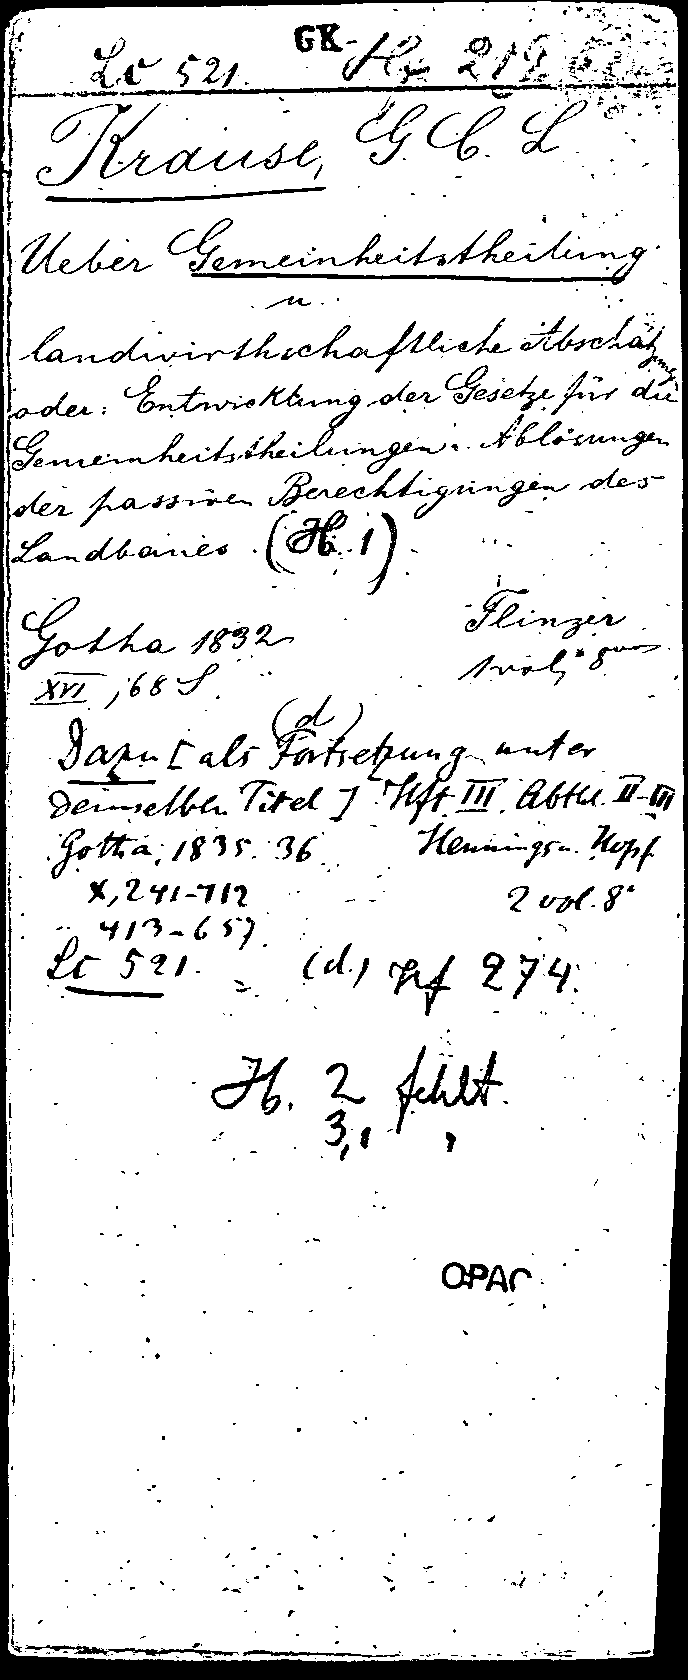 GK-
Lc 521.
Krause, G. C. L
Ueber Gemeinheitstheilung
u.
landwirthschaftliche Abschätzung
oder: Entwicklung der Gesetze für die
Gemeinheitstheilungen u. Ablösungen
der passiven Berechtigungen des
Landbaues. (H. 1)
Gotha 1832 Flinzer
XVI, 68 S. 1 vol, 8
(d)
Dazu [als Fortsetzung unter
demselben Titel] Hft III. Abthl. II-III
Gotha, 1835. 36 Hennings u. Hopf.
X, 241-412 2 vol. 8°
413-657.
Lc 521. = (d.) Hf 274.
H. 2 fehlt.
3,, "
OPAC